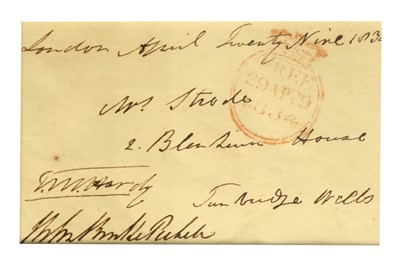 London April Twenty Nine 1834
FREE
29AP29
1834
Mrs Strode
2. Blenheim House
T.M. Hardy
Tunbridge Wells
John